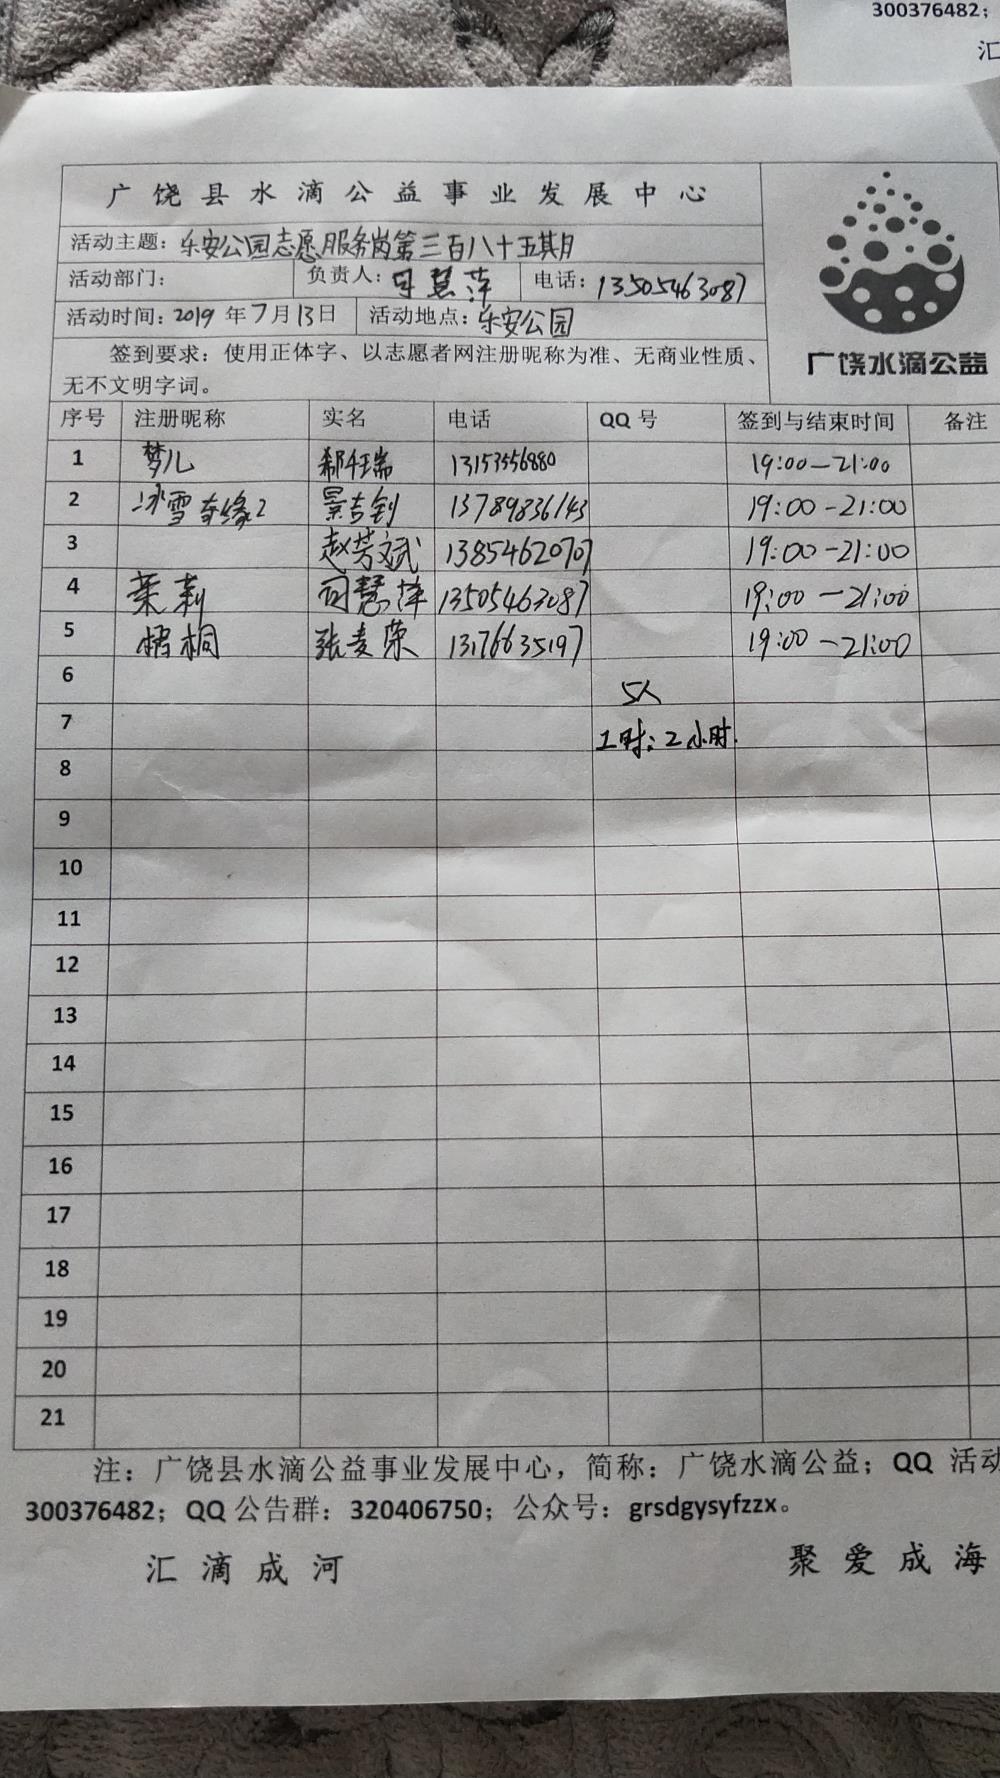 300376482；
汇
广饶县水滴公益事业发展中心
活动主题：乐安公园志愿服务岗第三百八十五期
活动部门： 负责人：司慧萍 电话：13505463087
活动时间：2019年7月13日 活动地点：乐安公园
签到要求：使用正体字、以志愿者网注册昵称为准、无商业性质、
无不文明字词。
广饶水滴公益
序号 注册昵称 实名 电话 QQ号 签到与结束时间 备注
1 梦儿 瑞 13153556880 19:00—21:00
2 冰雪奇缘2 景吉钊 13789836143 19:00-21:00
3 赵芳斌 13854620707 19:00-21:00
4 茉莉 司慧萍 13505463087 19:00-21:00
5 梧桐 张麦荣 13176635197 19:00-21:00
6 5人
7 工时：2小时.
8
9
10
11
12
13
14
15
16
17
18
19
20
21
注：广饶县水滴公益事业发展中心，简称：广饶水滴公益；QQ 活动
300376482；QQ公告群：320406750；公众号：grsdgysyfzzx。
汇滴成河 聚爱成海